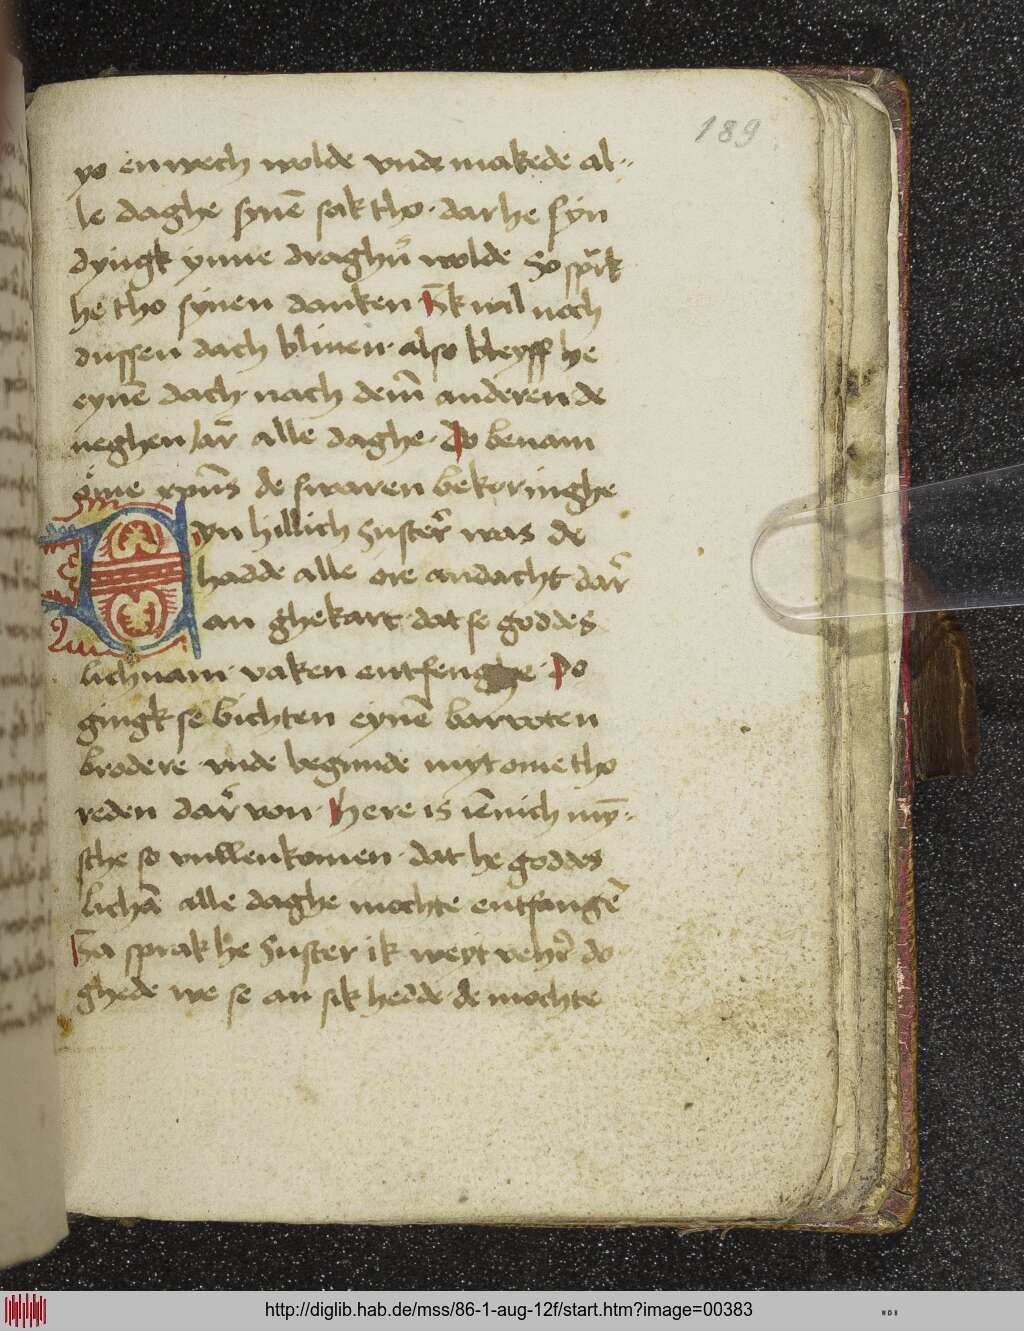 189
yo enwech wolde vnde makede al-
le daghe synē sak tho · dar he syn
dyngk ynne draghē wolde So sprak
he tho synen danken Ik wil noch
dussen dach bliuen · also bleyff he
eynē dach · nach dem̄ anderen de
neghen iar alle daghe · Do benam
ōme xpūs de swaren bekoringhe
Eyn hillich suster was de
hadde alle ore andacht dar
an ghekart · dat se goddes
lichnam · vaken entfenghe · Do
gingk se bichten eynē barvoten
brodere · vnde begunde myt ome tho
reden dar von · Here is iēnich my̅-
sche so vullenkomen · dat he goddes
lichā alle daghe mochte entfangē
Ja sprak he Suster ik weyt do
ghede we se an sik hedde de mochte
http://diglib.hab.de/mss/86-1-aug-12f/start.htm?image=00383